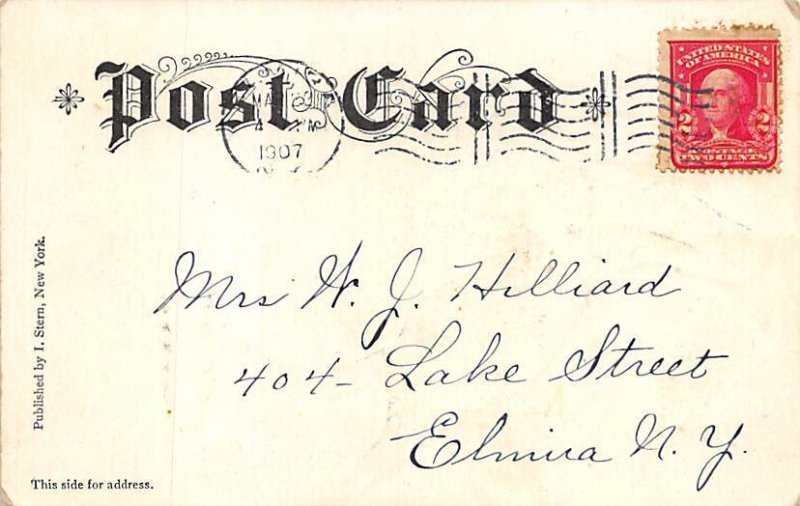 Post Card
MA
4 PM
1907
N.Y.
UNITED STATES
OF AMERICA
2 2
POSTAGE
TWO CENTS
Mrs W. J. Hilliard
404 - Lake Street
Elmira N. Y.
Published by I. Stern, New York.
This side for address.